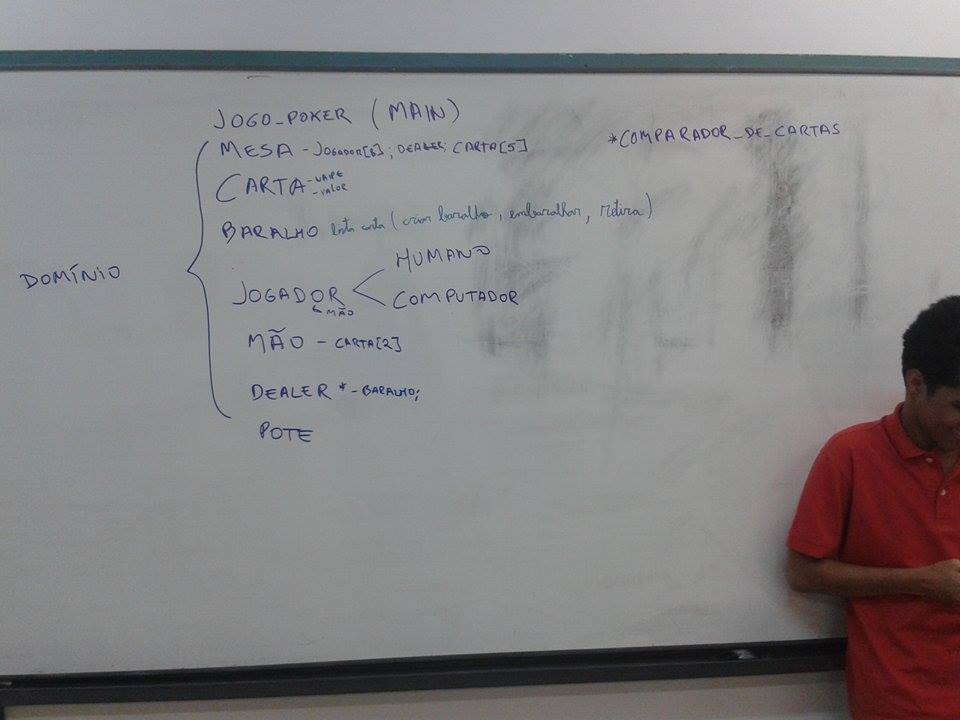 JOGO_POKER (MAIN)
MESA - JOGADOR[6]; DEALER; CARTA[5]
*COMPARADOR_DE_CARTAS
CARTA - NAIPE
- VALOR
BARALHO lista carta (criar baralho, embaralhar, retira)
DOMÍNIO
HUMANO
JOGADOR
COMPUTADOR
MÃO
MÃO - CARTA[2]
DEALER * - BARALHO;
POTE